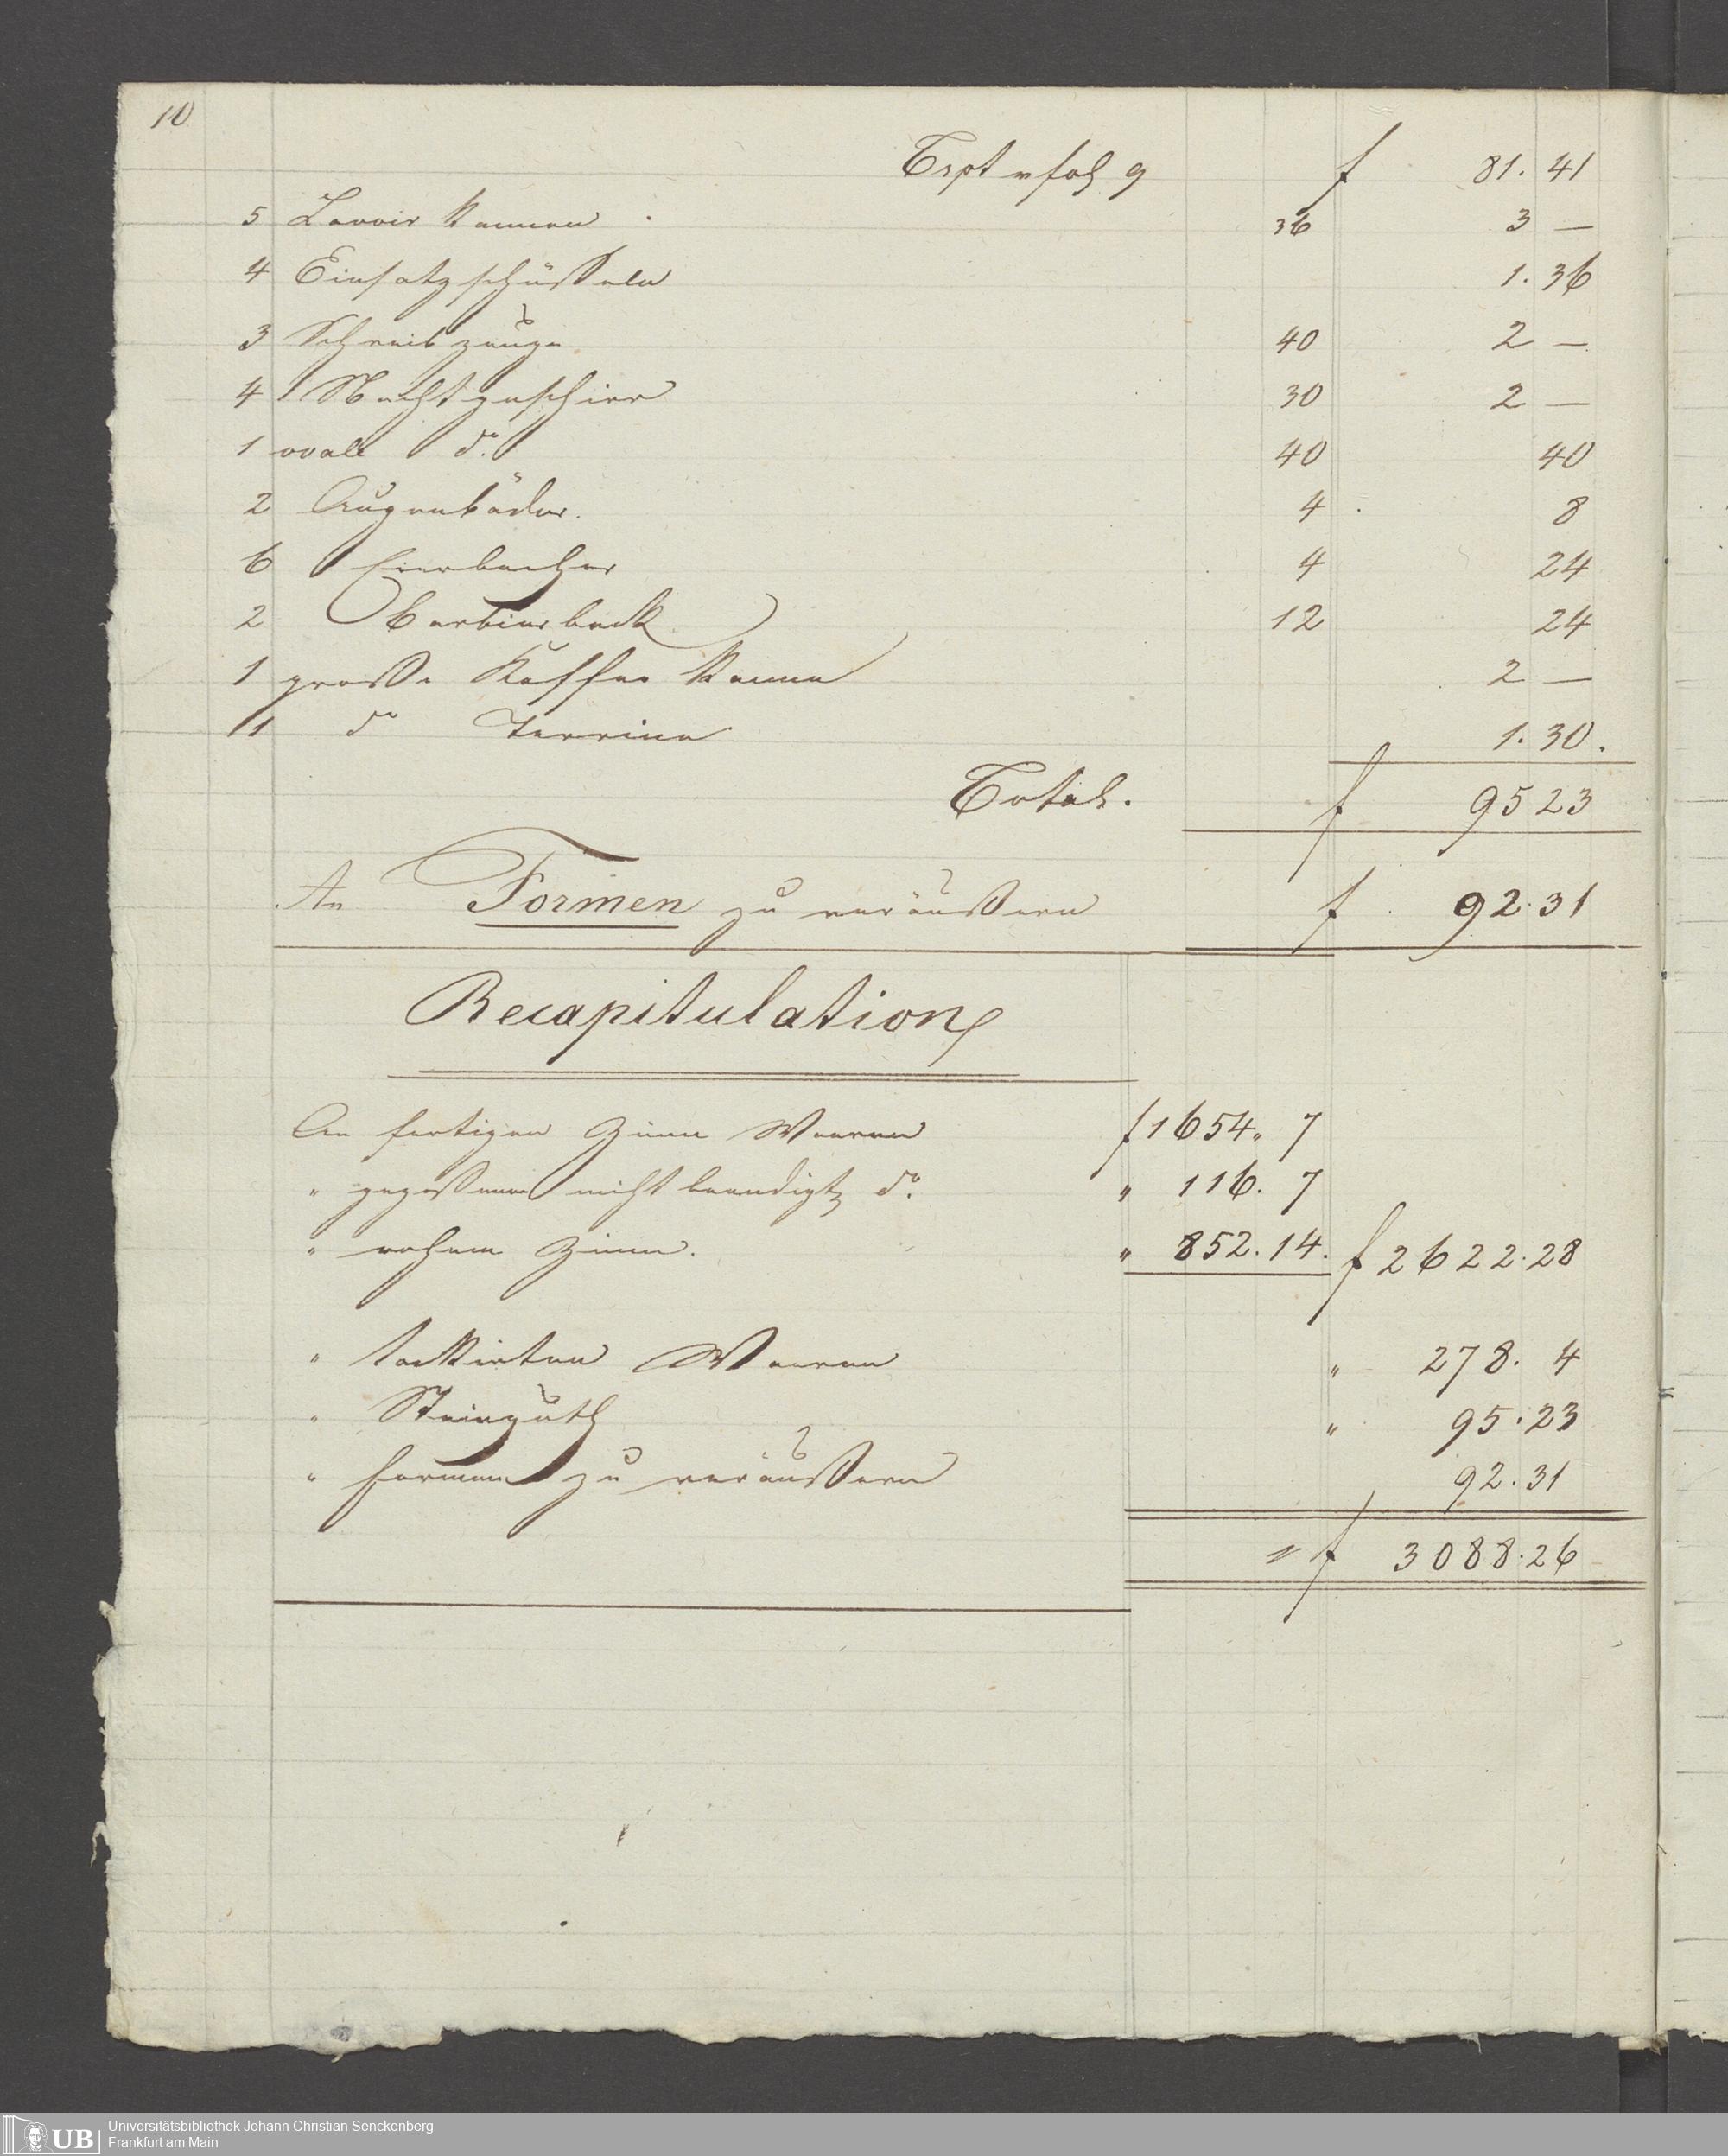 10
Trpt v fol 9 f 81. 41
5 Lavoir Kannen 36 3 —
4 Einsatzschüsseln 1. 36
3 Schreibzeuge 40 2 —
4 Nachtgeschirr 30 2 —
1 oval do. 40 40
2 Augenbäder. 4 8
6 Eierbecher 4 24
2 Barbierbeck 12 24
1 große Kaffee Kanne 2 —
1 do Terrine 1. 30.
Total. f 95 23
An Formen zu veräußern f 92. 31
Recapitulation
An fertigen Zinn Waaren f 1654 " 7
" gegossenen nicht beendigt do. " 116. 7
" rohem Zinn. " 852. 14. f 2622. 28
" lackirten Waaren " 278. 4
" Steinguth " 95. 23
" Formen zu veräußern 92. 31
f 3088. 26
UB Universitätsbibliothek Johann Christian Senckenberg
Frankfurt am Main